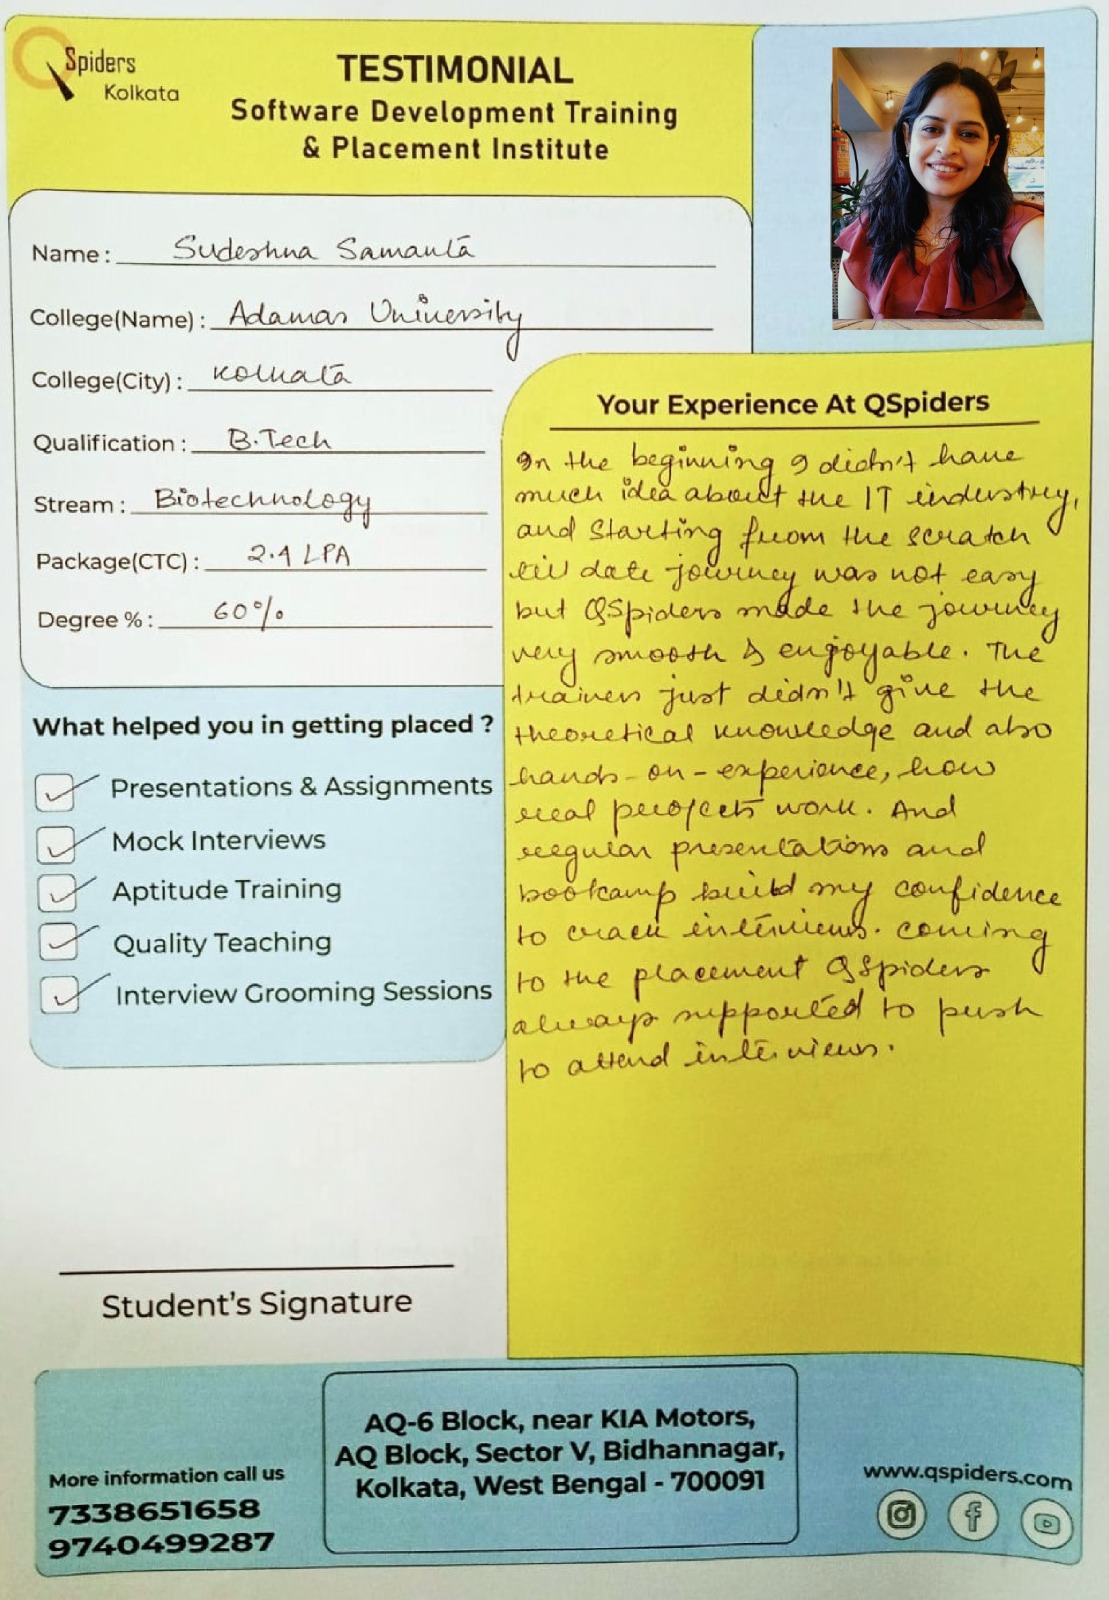 QSpiders
Kolkata
TESTIMONIAL
Software Development Training
& Placement Institute
Name : Sudeshna Samanta
College(Name) : Adamas University
College(City) : Kolkata
Qualification : B.Tech
Stream : Biotechnology
Package(CTC) : 2.4 LPA
Degree % : 60%
What helped you in getting placed ?
Presentations & Assignments
Mock Interviews
Aptitude Training
Quality Teaching
Interview Grooming Sessions
Student's Signature
Your Experience At QSpiders
In the beginning I didn't have
much idea about the IT industry,
and starting from the scratch
till date journey was not easy
but QSpiders made the journey
very smooth & enjoyable. The
trainers just didn't give the
theoretical knowledge and also
hands-on-experience, how
real projects work. And
regular presentations and
bootcamp build my confidence
to crack interviews. Coming
to the placement QSpiders
always supported to push
to attend interviews.
More information call us
7338651658
9740499287
AQ-6 Block, near KIA Motors,
AQ Block, Sector V, Bidhannagar,
Kolkata, West Bengal - 700091
www.qspiders.com